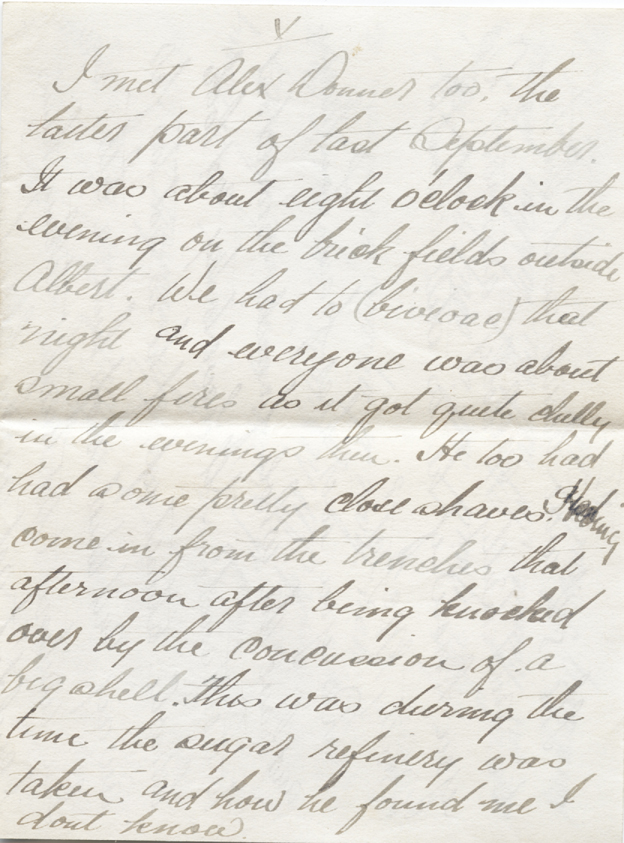 V
I met Alex Donner too, the
latter part of last September.
It was about eight o'clock in the
evening on the brick fields outside
Albert. We had to (bivioac) that
night and everyone was about
small fires as it got quite chilly
in the evenings then. He too had
had some pretty close shaves.
come in from the trenches that
afternoon after being knocked
over by the concussion of a
big shell. This was during the
time the sugar refinery was
taken and how he found me I
dont know.